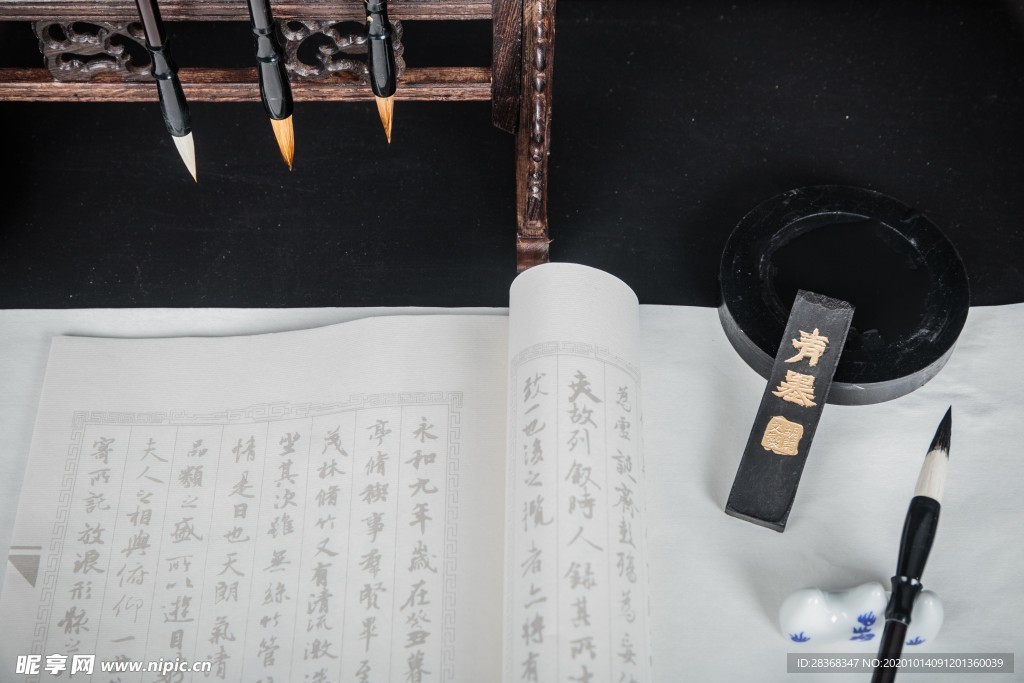 為虛誕齊彭殤為妄
夫故列敘時人錄其所
致一也後之攬者亦將有
永和九年歲在癸丑暮
亭脩禊事羣賢畢至
茂林脩竹又有清流激
坐其次雖無絲竹管
情是日也天朗氣清
品類之盛所以遊目
夫人之相與俯仰一
寄所託放浪形骸之
青墨
昵享网 www.nipic.cn
ID:28368347 NO:20201014091201360039